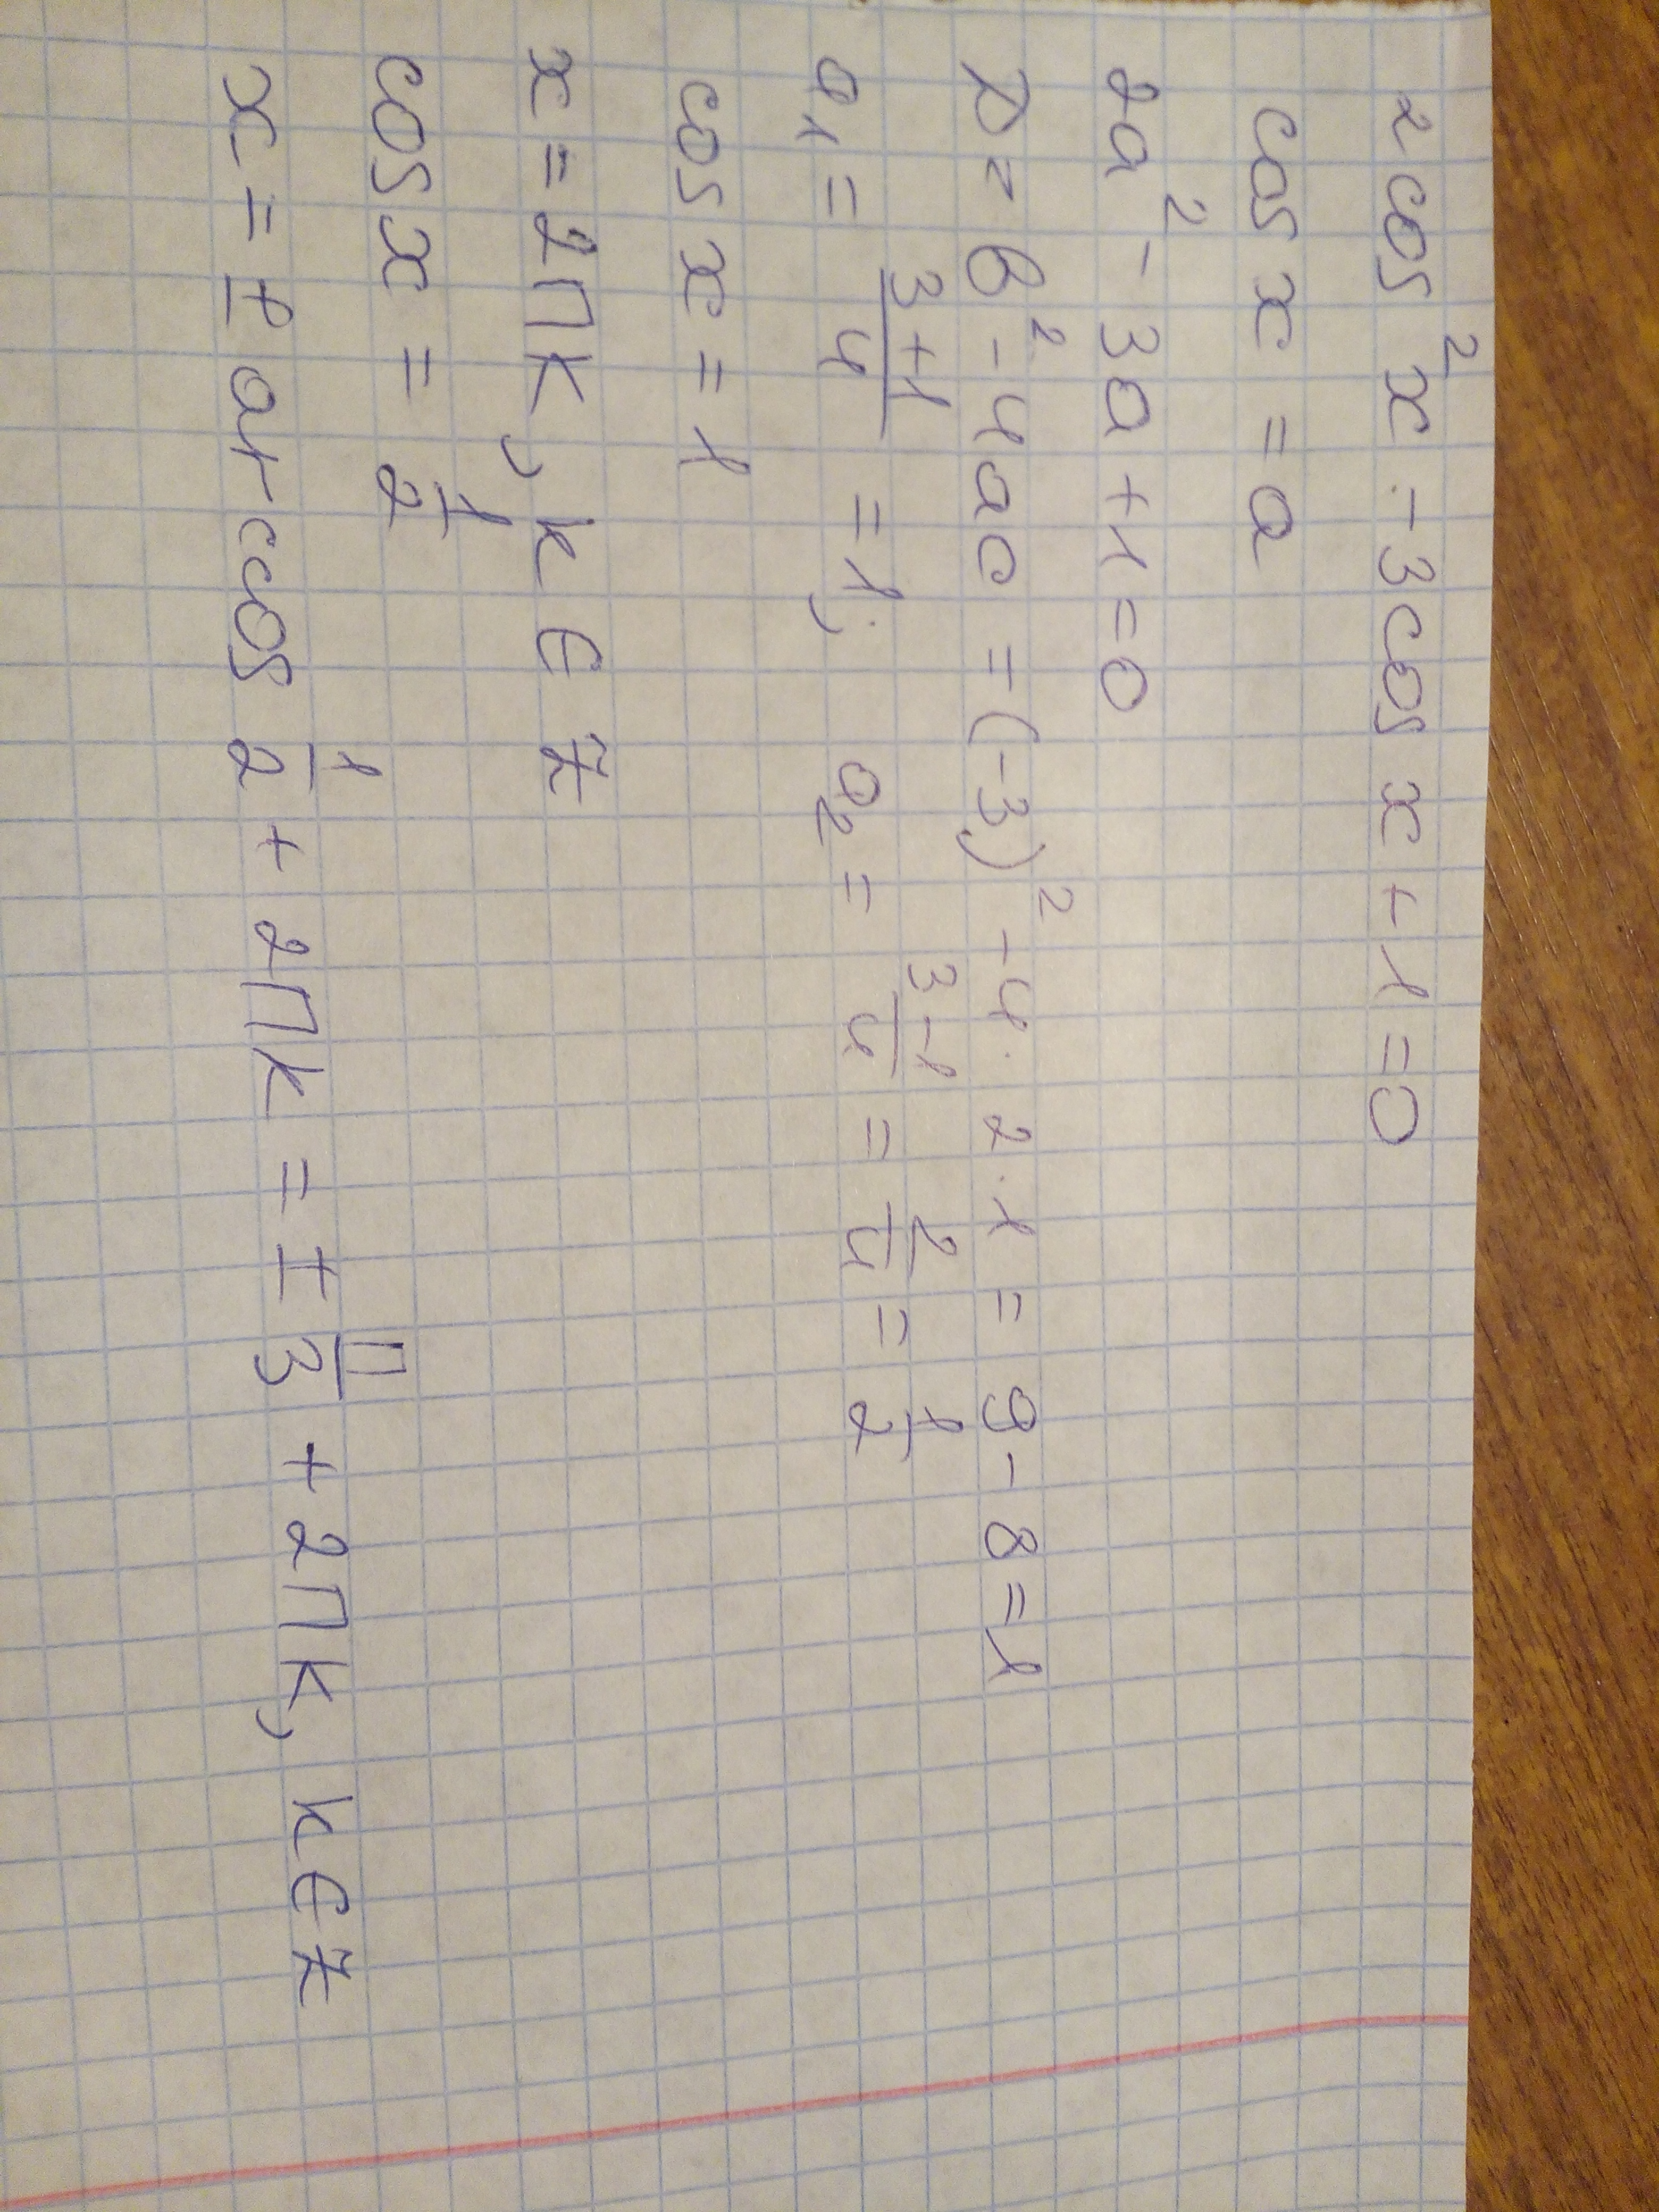 2cos²x - 3cos x + 1 = 0
cos x = a
2a² - 3a + 1 = 0
D = b² - 4ac = (-3)² - 4 · 2 · 1 = 9 - 8 = 1
a₁ = (3+1)/4 = 1; a₂ = (3-1)/4 = 2/4 = 1/2
cos x = 1
x = 2πk, k ∈ Z
cos x = 1/2
x = ± arccos 1/2 + 2πk = ± π/3 + 2πk, k ∈ Z